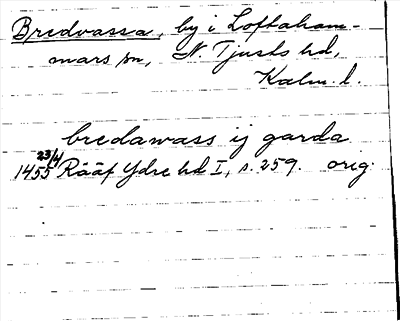 Bredvassa, by i Loftaham-
mars sn, N. Tjusts hd,
Kalm. l.
bredawass ij garda
23/4
1455 Rääf Ydre hd I, s. 259. orig.